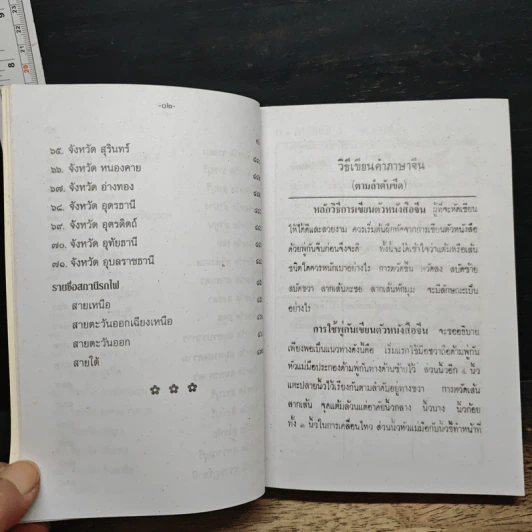 -๐๒-
๖๕. จังหวัด สุรินทร์
๖๖. จังหวัด หนองคาย
๖๗. จังหวัด อ่างทอง
๖๘. จังหวัด อุดรธานี
๖๙. จังหวัด อุตรดิตถ์
๗๐. จังหวัด อุทัยธานี
๗๑. จังหวัด อุบลราชธานี
รายชื่อสถานีรถไฟ
สายเหนือ
สายตะวันออกเฉียงเหนือ
สายตะวันออก
สายใต้
วิธีเขียนคำภาษาจีน
(ตามลำดับขีด)
หลักวิธีการเขียนตัวหนังสือจีน ผู้ที่จะหัดเขียน
ให้ได้ดีและสวยงาม ควรเริ่มต้นฝึกหัดจากการเขียนตัวหนังสือ
ด้วยพู่กันจีนก่อนจึงจะดี ทั้งนี้จะได้เข้าใจว่าเส้น
ชนิดใดควรหนักเบาอย่างไร การตวัดขึ้น ตวัดลง สบัดซ้าย
สบัดขวา ลากเส้น ลากเส้นหักมุม จะมีลักษณะเป็น
อย่างไร
การใช้พู่กันเขียนตัวหนังสือจีน จะขออธิบาย
เพียงพอเป็นแนวทางดังนี้คือ เริ่มแรกใช้มือขวาถือด้ามพู่กัน
หัวแม่มือประกองด้ามพู่กันทางด้านซ้ายไว้ ส่วนนิ้วอีก ๔ นิ้ว
และปลายนิ้วไว้เรียงกันตามลำดับอยู่ทางขวา การตวัดเส้น
ลากเส้น จุดแต้มล้วนแต่อาศัยนิ้วกลาง นิ้วนาง นิ้วก้อย
ทั้ง ๓ นิ้วในการเคลื่อนไหว ส่วนนิ้วหัวแม่มือกับนิ้วชี้ทำหน้าที่